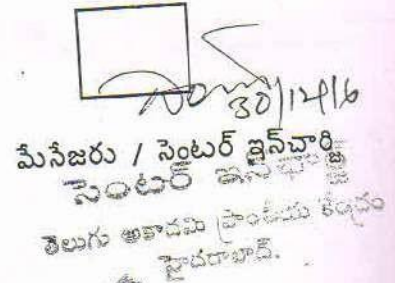 30/12/16
మేనేజరు / సెంటర్ ఇన్‌చార్జి
సెంటర్ ఇన్‌చార్జి
తెలుగు అకాదమి ప్రాంతీయ కేంద్రం
హైదరాబాద్.